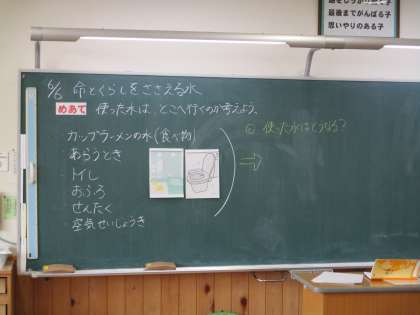 最後までがんばる子
思いやりのある子
6/6 命とくらしをささえる水
めあて 使った水は、どこへ行くのか考えよう。
カップラーメンの水(食べ物)
あらうとき
トイレ
おふろ
せんたく
空気せいじょうき
使った水はどうなる?